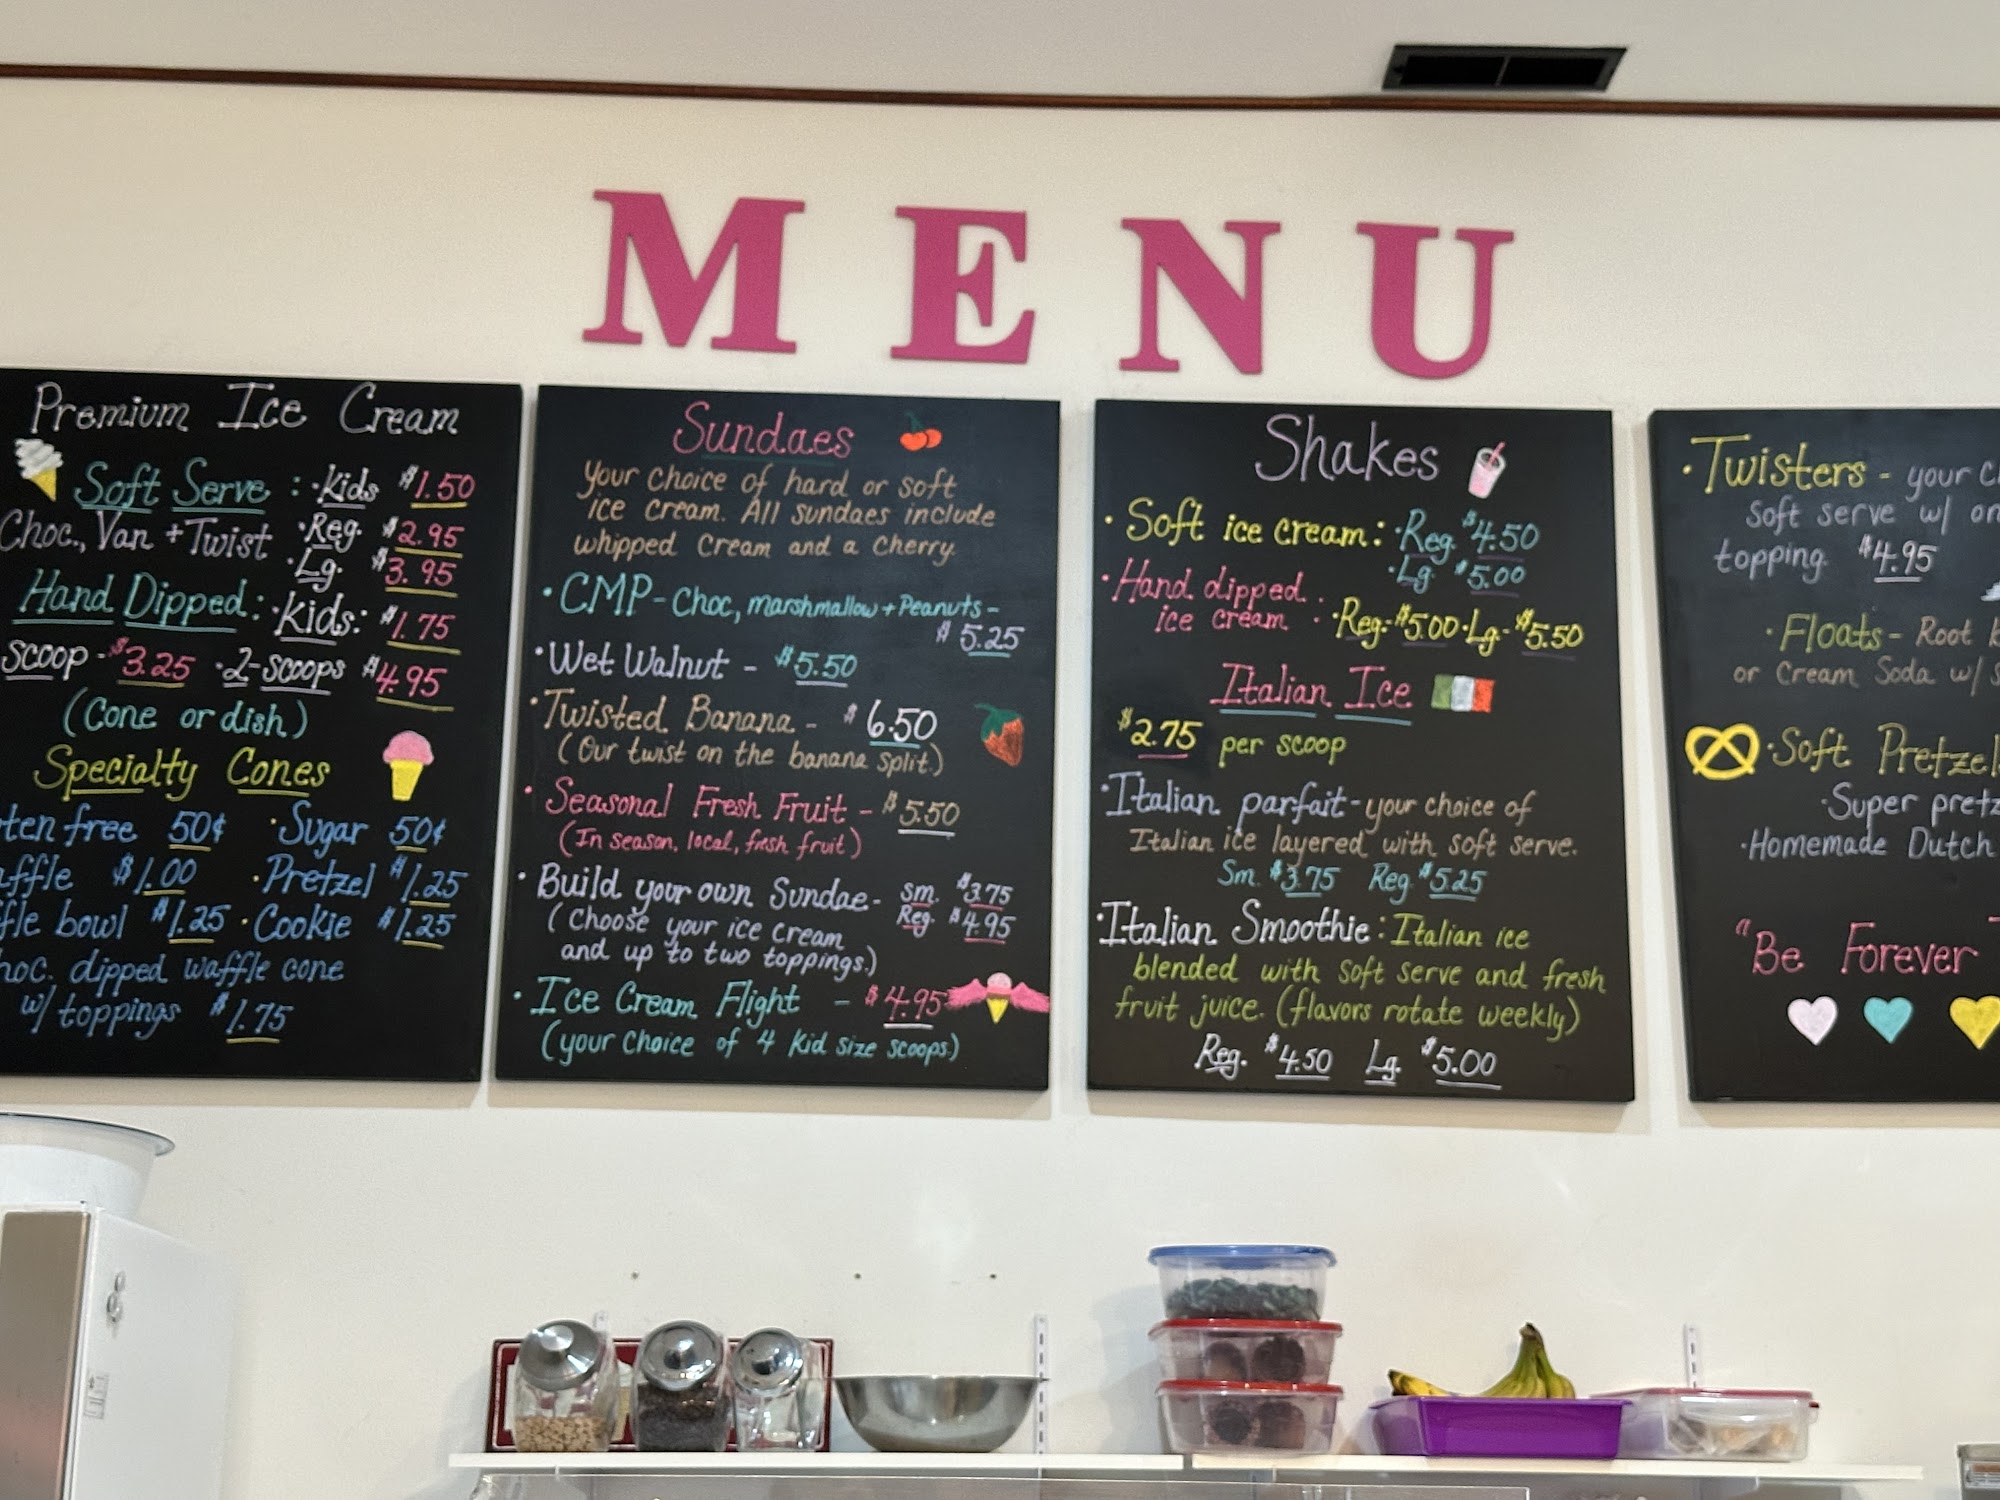 MENU
Premium Ice Cream
Soft Serve : · Kids $1.50
Choc., Van + Twist · Reg. $2.95
· Lg. $3.95
Hand Dipped: · Kids: $1.75
scoop - $3.25 · 2-scoops $4.95
(Cone or dish)
Specialty Cones
ten free 50¢ · Sugar 50¢
affle $1.00 · Pretzel $1.25
fle bowl $1.25 · Cookie $1.25
hoc. dipped waffle cone
w/ toppings $1.75
Sundaes
Your choice of hard or soft
ice cream. All sundaes include
whipped cream and a cherry.
· CMP - Choc, marshmallow + Peanuts -
$5.25
· Wet Walnut - $5.50
· Twisted Banana - $6.50
(Our twist on the banana split.)
· Seasonal Fresh Fruit - $5.50
(In season, local, fresh fruit)
· Build your own Sundae - sm. $3.75
(Choose your ice cream Reg. $4.95
and up to two toppings.)
· Ice Cream Flight - $4.95
(your choice of 4 kid size scoops.)
Shakes
· Soft ice cream: · Reg. $4.50
· Lg. $5.00
· Hand dipped
ice cream : · Reg.- $5.00 · Lg.- $5.50
Italian Ice
$2.75 per scoop
· Italian parfait - your choice of
Italian ice layered with soft serve.
Sm. $3.75 Reg. $5.25
· Italian Smoothie: Italian ice
blended with soft serve and fresh
fruit juice. (flavors rotate weekly)
Reg. $4.50 Lg. $5.00
· Twisters - your c
Soft serve w/ on
topping. $4.95
· Floats - Root
or Cream Soda w/ s
· Soft Pretzel
· Super pretz
· Homemade Dutch
"Be Forever